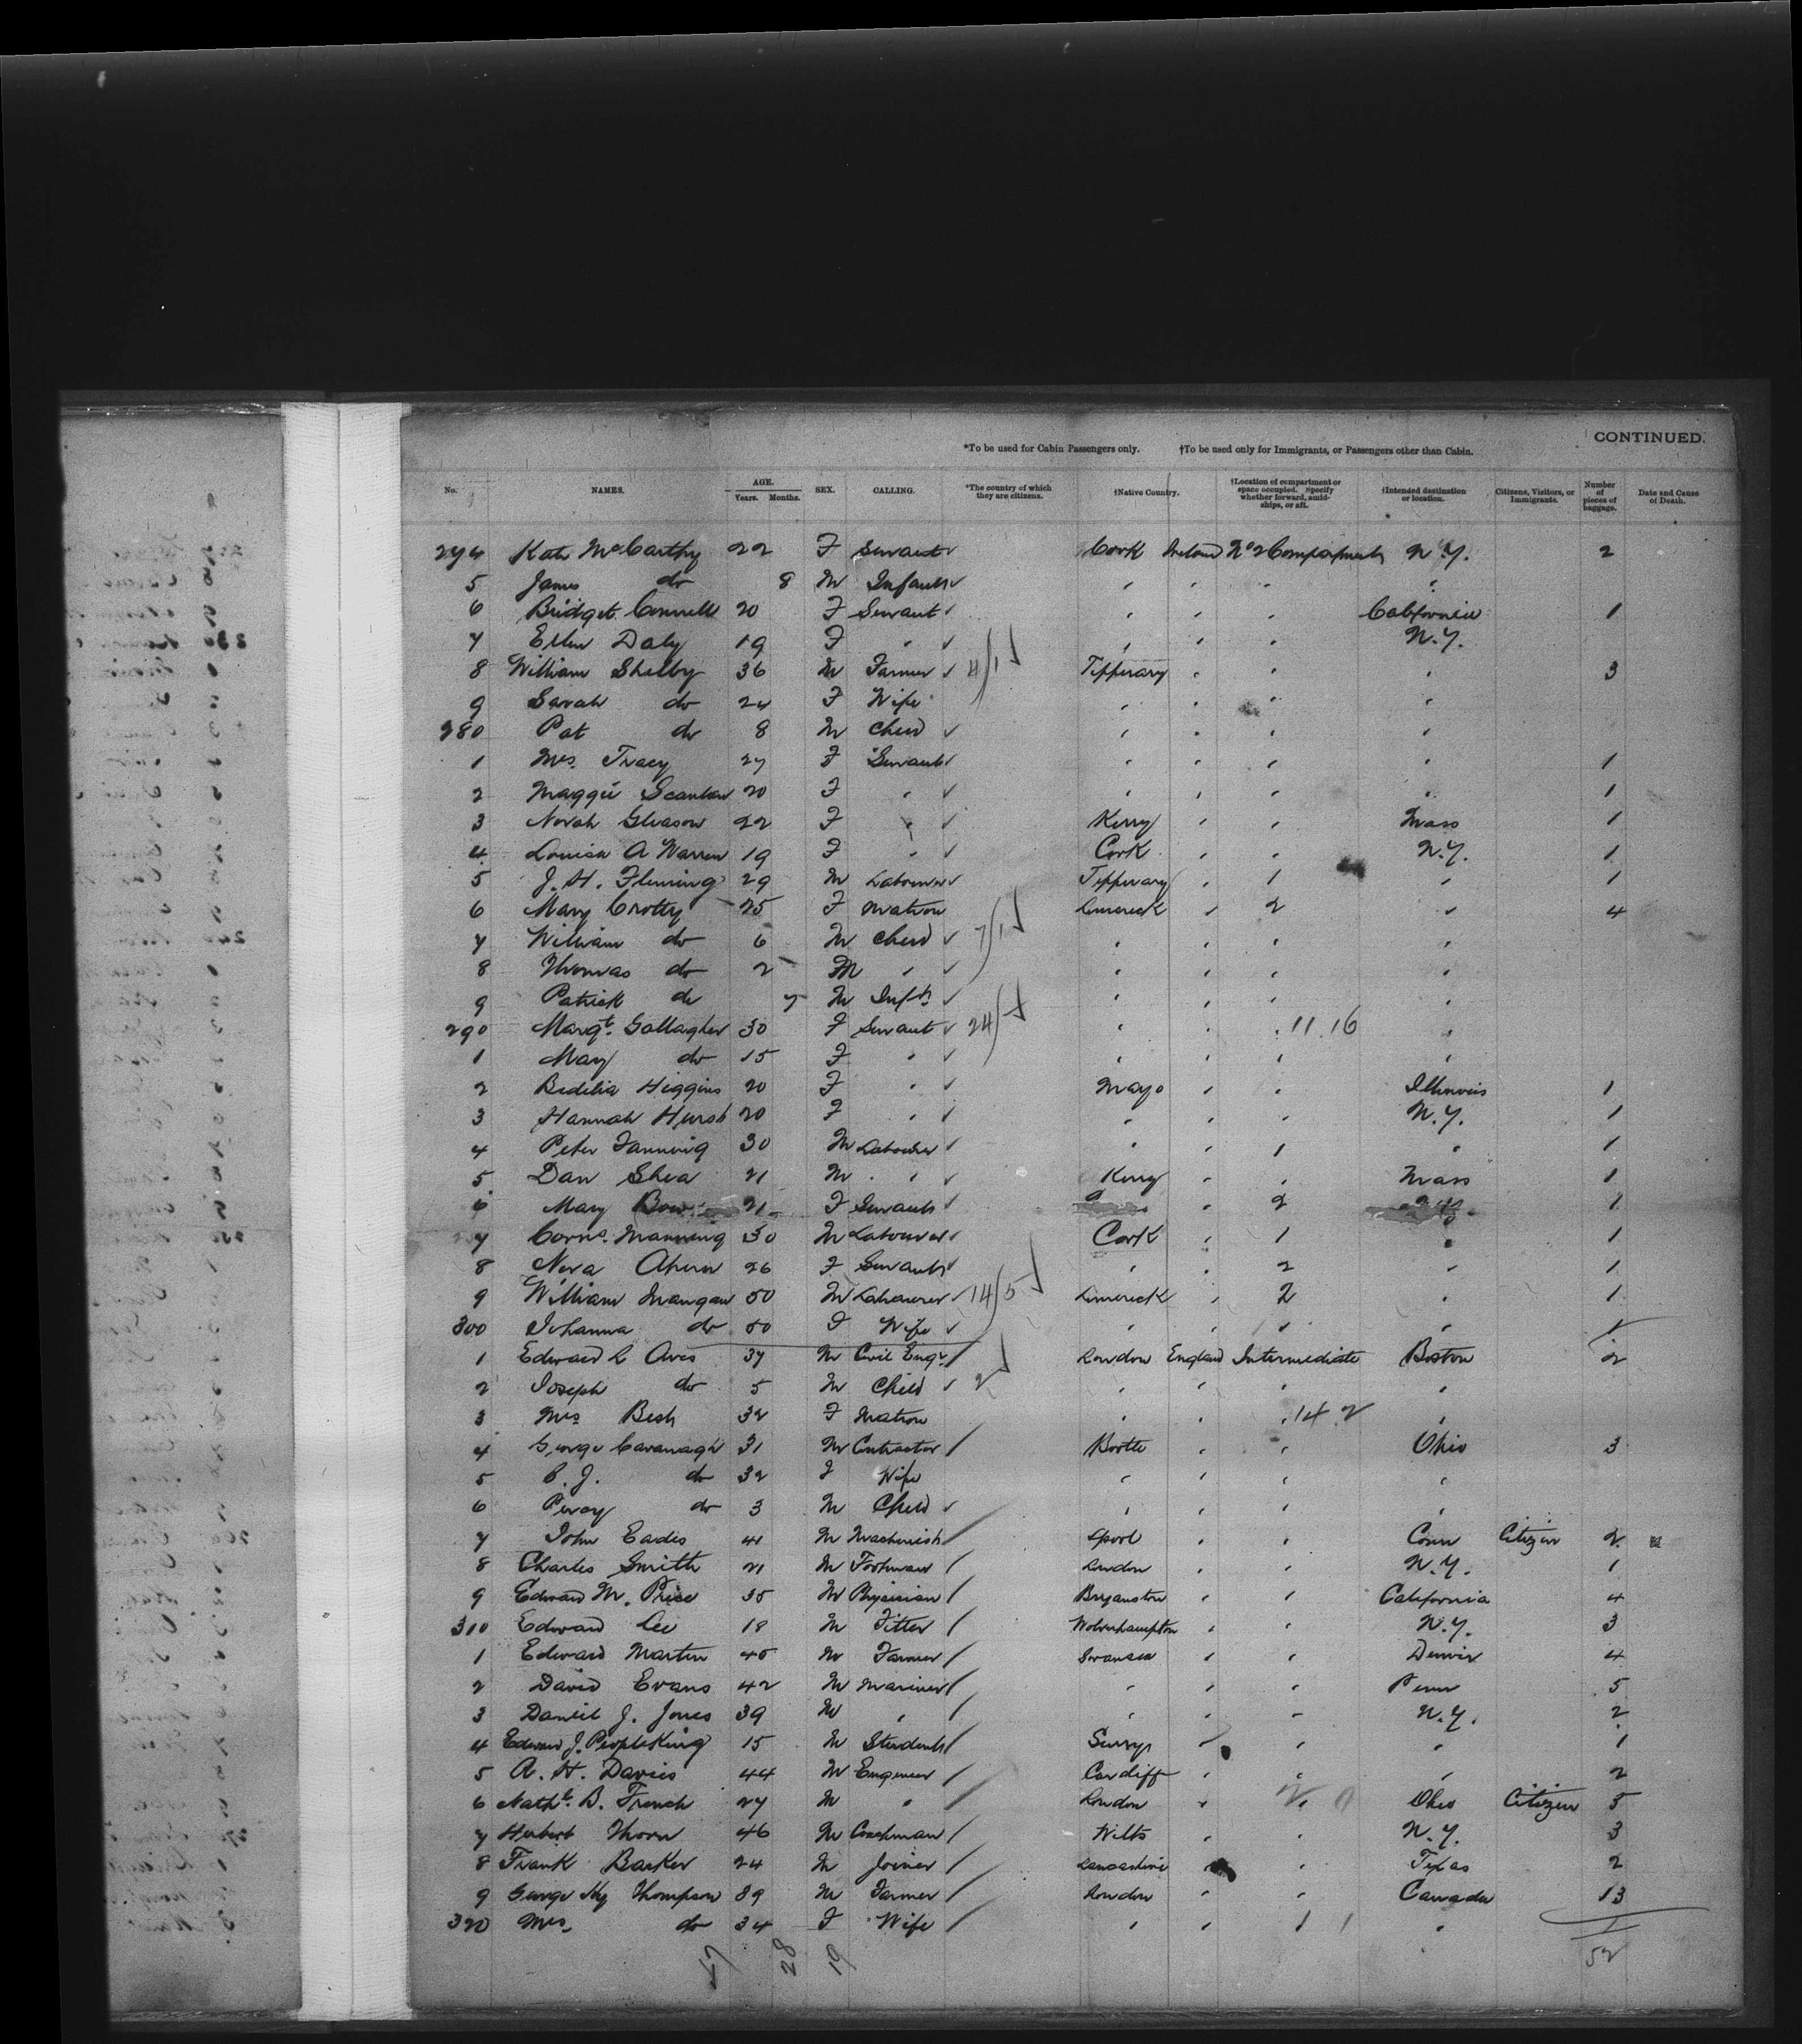 CONTINUED.
*To be used for Cabin Passengers only. †To be used only for Immigrants, or Passengers other than Cabin.
No. NAMES. AGE. Years. Months. SEX. CALLING. *The country of which they are citizens. †Native Country. †Location of compartment or space occupied. Specify whether forward, amidships, or aft. †Intended destination or location. Citizens, Visitors, or Immigrants. Number of pieces of baggage. Date and Cause of Death.
274 Kate McCarthy 22 F Servant ✓ Cork Ireland No 2 Compartment N.Y. 2
5 James do 8 M Infant ✓ " " " "
6 Bridget Connell 20 F Servant ✓ " " " California 1
7 Ellen Daly 19 F " ✓ " " " N.Y.
8 William Shelby 36 M Farmer ✓ 4/1 Tipperary " " " 3
9 Sarah do 24 F Wife " " " "
280 Pat do 8 M Child ✓ " " " "
1 Mrs. Tracy 27 F Servant ✓ " " " " 1
2 Maggie Scanlan 20 F " ✓ " " " " 1
3 Norah Gleason 22 F " ✓ Kerry " " Mass 1
4 Louisa A Warren 19 F " ✓ Cork " " N.Y. 1
5 J. H. Fleming 29 M Labourer ✓ Tipperary " 1 " 1
6 Mary Crotty 25 F Matron Limerick " 2 " 4
7 William do 6 M Child ✓ 7/1 " " " "
8 Thomas do 2 M " ✓ " " " "
9 Patrick do 7 M Inft ✓ " " " "
290 Margt. Gallagher 30 F Servant ✓ 24 " " " 11.16 "
1 Mary do 15 F " ✓ " " " "
2 Bedelia Higgins 20 F " ✓ Mayo " " Illinois 1
3 Hannah Hurst 20 F " ✓ " " " N.Y. 1
4 Peter Fanning 30 M Labourer ✓ " " 1 " 1
5 Dan Shea 21 M " ✓ Kerry " " Mass 1
6 Mary 21 F Servant ✓ " 2 1
7 Corns. Manning 30 M Labourer ✓ Cork " 1 " 1
8 Nora Ahern 26 F Servant ✓ " " 2 " 1
9 William Mangan 50 M Labourer ✓ 14/5 Limerick " 2 " 1
300 Johanna do 50 F Wife ✓ " " " " 1
1 Edward L Aves 37 M Civil Engr London England Intermediate Boston 2
2 Joseph do 5 M Child ✓ 2 " " " "
3 Mrs Besh 32 F Matron " " " 14.2 "
4 George Cavanagh 31 M Contractor Bootle " " Ohio 3
5 C. J. do 32 F Wife " " " "
6 Percy do 3 M Child ✓ " " " "
7 John Eades 41 M Machinist Lpool " " Conn Citizen 2
8 Charles Smith 21 M Footman London " " N.Y. 1
9 Edward M. Price 35 M Physician Bryanston " " California 4
310 Edward Lee 18 M Fitter Wolverhampton " " N.Y. 3
1 Edward Martin 45 M Farmer Swansea " " Denver 4
2 David Evans 42 M Mariner " " " Penn 5
3 Daniel J. Jones 39 M " " " " N.Y. 2
4 Edward J. Peopleking 15 M Student Surry " " " 1
5 A. H. Davies 44 M Engineer Cardiff " " " 2
6 Nathl. B. French 27 M " London " " Ohio Citizen 5
7 Herbert Thorn 46 M Coachman Wilts " " N.Y. 3
8 Frank Barker 24 M Joiner Lancashire " " Texas 2
9 George Hy Thompson 39 M Farmer London " " Canada 13
320 Mrs. do 34 F Wife " " 1 1 "
28 19 52